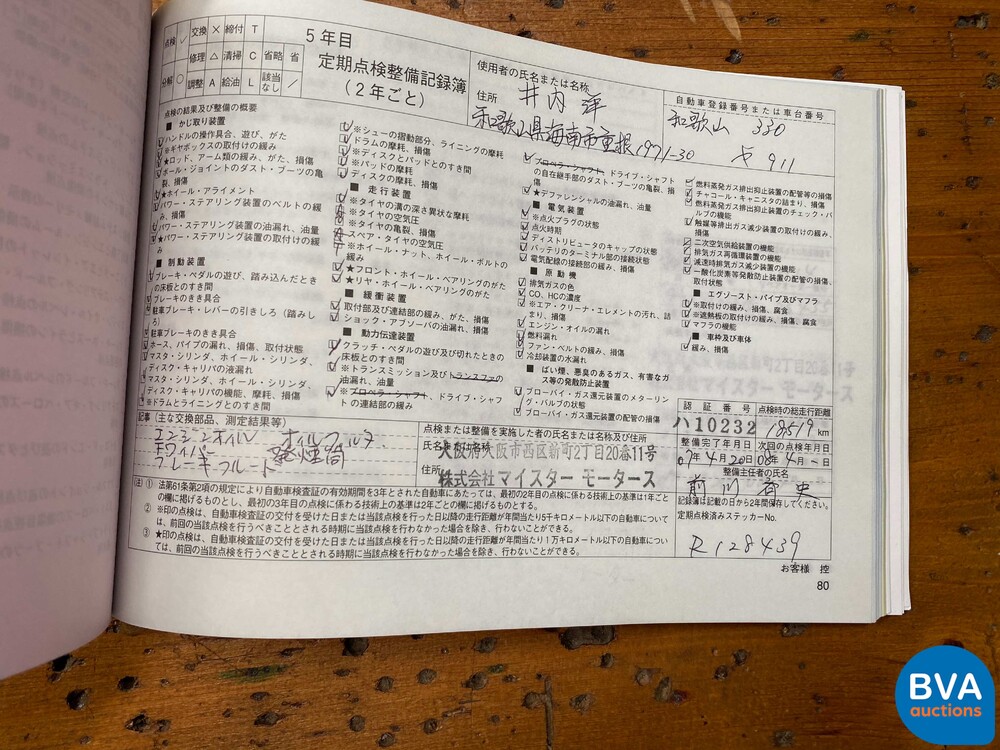 点検 ✓ 交換 × 締付 T
修理 △ 清掃 C 省略 省
分解 ○ 調整 A 給油 L 該当なし ／
5年目
定期点検整備記録簿
(2年ごと)
使用者の氏名または名称
井内 洋
住所
和歌山県海南市重根1971-30
自動車登録番号または車台番号
和歌山 330
911
点検の結果及び整備の概要
■ かじ取り装置
ハンドルの操作具合、遊び、がた
※ギヤボックスの取付けの緩み
★ロッド、アーム類の緩み、がた、損傷
ボール・ジョイントのダスト・ブーツの亀裂、損傷
★ホイール・アライメント
パワー・ステアリング装置のベルトの緩み、損傷
パワー・ステアリング装置の油漏れ、油量
★パワー・ステアリング装置の取付けの緩み
■ 制動装置
ブレーキ・ペダルの遊び、踏み込んだときの床板とのすき間
ブレーキのきき具合
駐車ブレーキ・レバーの引きしろ(踏みしろ)
駐車ブレーキのきき具合
ホース、パイプの漏れ、損傷、取付状態
マスタ・シリンダ、ホイール・シリンダ、ディスク・キャリパの液漏れ
マスタ・シリンダ、ホイール・シリンダ、ディスク・キャリパの機能、摩耗、損傷
※ドラムとライニングとのすき間
※シューの摺動部分、ライニングの摩耗
ドラムの摩耗、損傷
※ディスクとパッドとのすき間
※パッドの摩耗
ディスクの摩耗、損傷
■ 走行装置
※タイヤの溝の深さ異状な摩耗
※タイヤの空気圧
※タイヤの亀裂、損傷
スペア・タイヤの空気圧
※ホイール・ナット、ホイール・ボルトの緩み
★フロント・ホイール・ベアリングのがた
★リヤ・ホイール・ベアリングのがた
■ 緩衝装置
取付部及び連結部の緩み、がた、損傷
ショック・アブソーバの油漏れ、損傷
■ 動力伝達装置
クラッチ・ペダルの遊び及び切れたときの床板とのすき間
※トランスミッション及びトランスファの油漏れ、油量
※プロペラ・シャフト、ドライブ・シャフトの連結部の緩み
プロペラ・シャフト、ドライブ・シャフトの自在継手部のダスト・ブーツの亀裂、損傷
★デファレンシャルの油漏れ、油量
■ 電気装置
※点火プラグの状態
点火時期
ディストリビュータのキャップの状態
バッテリのターミナル部の接続状態
電気配線の接続部の緩み、損傷
■ 原動機
排気ガスの色
CO、HCの濃度
※エア・クリーナ・エレメントの汚れ、詰まり、損傷
エンジン・オイルの漏れ
燃料漏れ
ファン・ベルトの緩み、損傷
冷却装置の水漏れ
■ ばい煙、悪臭のあるガス、有害なガス等の発散防止装置
ブローバイ・ガス還元装置のメターリング・バルブの状態
ブローバイ・ガス還元装置の配管の損傷
燃料蒸発ガス排出抑止装置の配管等の損傷
チャコール・キャニスタの詰まり、損傷
燃料蒸発ガス排出抑止装置のチェック・バルブの機能
触媒等排出ガス減少装置の取付けの緩み、損傷
二次空気供給装置の機能
排気ガス再循環装置の機能
減速時排気ガス減少装置の機能
一酸化炭素等発散防止装置の配管の損傷、取付状態
■ エグゾースト・パイプ及びマフラ
※取付けの緩み、損傷、腐食
※遮熱板の取付けの緩み、損傷、腐食
マフラの機能
■ 車枠及び車体
緩み、損傷
記事(主な交換部品、測定結果等)
エンジンオイル オイルフィルタ
Fワイパー 発煙筒
ブレーキフルード
点検または整備を実施した者の氏名または名称及び住所
氏名または名称
大阪府大阪市西区新町2丁目20番11号
住所
株式会社マイスター モータース
認証番号
ハ10232
点検時の総走行距離
18519 km
整備完了年月日
07年4月20日
次回の点検年月日
08年4月-日
整備主任者の氏名
前川
記録簿は記載の日から2年間保存してください。
定期点検済みステッカーNo.
R128439
(注) ① 法第61条第2項の規定により自動車検査証の有効期間を3年とされた自動車にあたっては、最初の2年目の点検に係わる技術上の基準は1年ごとの欄に掲げるものとし、最初の3年目の点検に係わる技術上の基準は2年ごとの欄に掲げるものとする。
② ※印の点検は、自動車検査証の交付を受けた日または当該点検を行った日以降の走行距離が年間当たり5千キロメートル以下の自動車については、前回の当該点検を行うべきこととされる時期に当該点検を行わなかった場合を除き、行わないことができる。
③ ★印の点検は、自動車検査証の交付を受けた日または当該点検を行った日以降の走行距離が年間当たり1万キロメートル以下の自動車については、前回の当該点検を行うべきこととされる時期に当該点検を行わなかった場合を除き、行わないことができる。
お客様 控
80
BVA
auctions